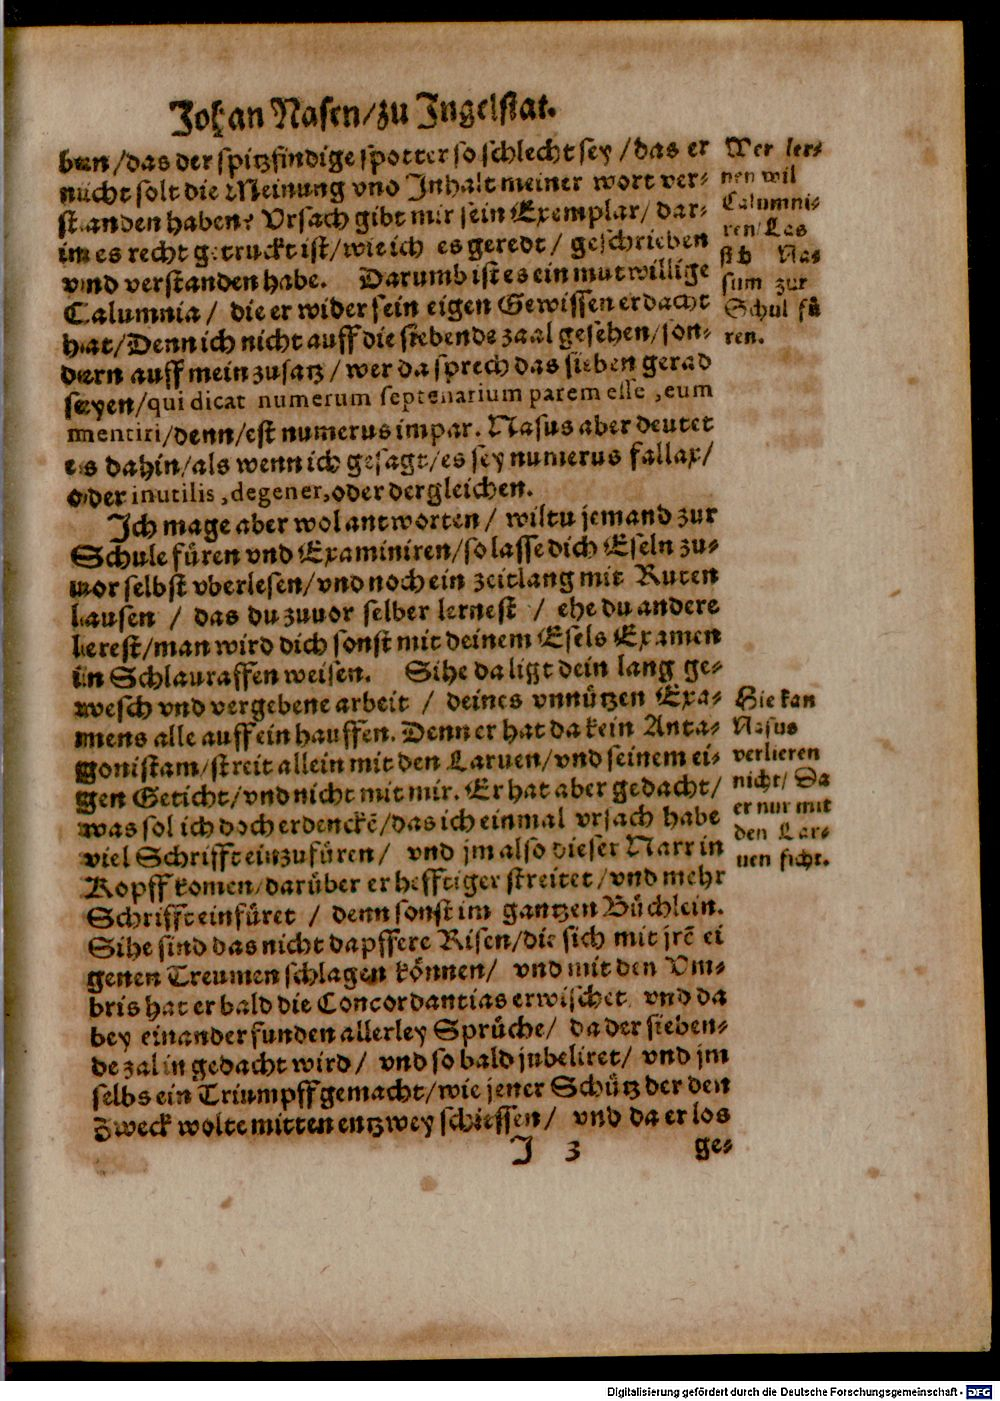 Johan Nasen/zu Jngelstat.
ben/das der spitzfindige spotter so schlecht sey/das er
nicht solt die Meinung vnd Jnhalt meiner wort ver-
standen haben? Vrsach gibt mir sein Exemplar/ dar-
in es recht getruckt ist/wie ich es geredt/ geschrieben
vnd verstanden habe. Darumb ist es ein mutwillige
Calumnia/ die er wider sein eigen Gewissen erdacht
hat/Denn ich nicht auff die siebende zaal gesehen/son-
dern auff mein zusatz/wer da sprech das sieben gerad
seyen/qui dicat numerum septenarium parem esse, eum
mentiri/denn/est numerus impar. Nasus aber deutet
es dahin/als wenn ich gesagt/es sey numerus fallax/
oder inutilis, degener, oder dergleichen.
Jch mage aber wol antworten/ wiltu jemand zur
Schule füren vnd Examiniren/so lasse dich Eseln zu-
uor selbst vberlesen/vnd noch ein zeitlang mit Ruten
lausen / das du zuuor selber lernest / ehe du andere
lerest/man wird dich sonst mit deinem Esels Examen
in Schlauraffen weisen. Sihe da ligt dein lang ge-
wesch vnd vergebene arbeit / deines vnnützen Exa-
mens alle auff ein hauffen. Denn er hat da kein Anta-
gonistam/streit allein mit den Laruen/vnd seinem ei-
gen Geticht/vnd nicht mit mir. Er hat aber gedacht/
was sol ich doch erdenckē/das ich einmal vrsach habe
viel Schrifft einzufüren/ vnd jm also dieser Narr in
Kopff komen/darüber er hefftiger streitet/vnd mehr
Schrifft einfüret / denn sonst im gantzen Büchlein.
Sihe sind das nicht dapffere Risen/die sich mit jrē ei
genen Treumen schlagen können/ vnd mit den Vm-
bris hat er bald die Concordantias erwischet, vnd da
bey einander funden allerley Sprüche/ da der sieben-
de zal in gedacht wird/ vnd so bald jubeliret/ vnd jm
selbs ein Triumpff gemacht/wie jener Schütz der den
Zweck wolte mitten entzwey schiessen/ vnd da er los
J 3
ge-
Wer ler-
nen wil
Calumni-
ren/Las
sich Na-
sum zur
Schul fü
ren.
Hie kan
Nasus
verlieren
nicht/ Da
er nur mit
den Lar-
uen ficht.
Digitalisierung gefördert durch die Deutsche Forschungsgemeinschaft - DFG